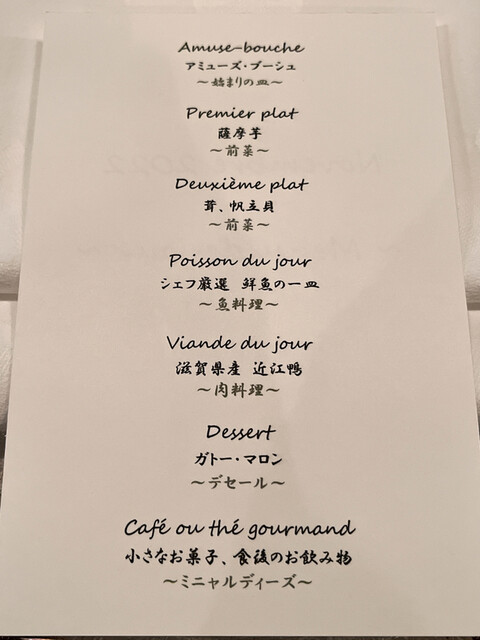 Amuse-bouche
アミューズ・ブーシュ
～始まりの皿～
Premier plat
薩摩芋
～前菜～
Deuxième plat
茸、帆立貝
～前菜～
Poisson du jour
シェフ厳選 鮮魚の一皿
～魚料理～
Viande du jour
滋賀県産 近江鴨
～肉料理～
Dessert
ガトー・マロン
～デセール～
Café ou thé gourmand
小さなお菓子、食後のお飲み物
～ミニャルディーズ～